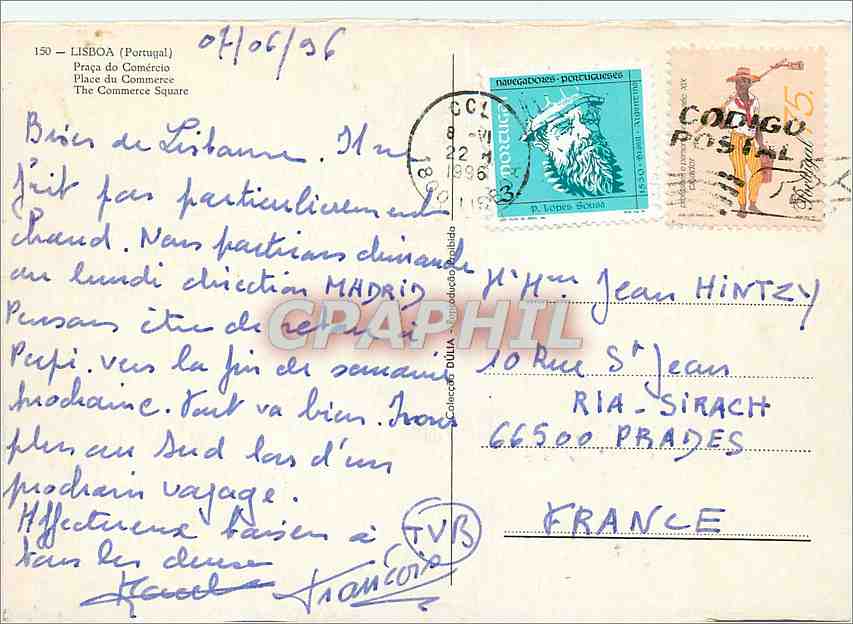 150 — LISBOA (Portugal)
Praça do Comércio
Place du Commerce
The Commerce Square
07/06/96
Bises de Lisbonne. Il ne
fait pas particulièrement
chaud. Nous partirons dimanche
ou lundi direction MADRID
Pensons être de retour à
vers la fin de semaine
prochaine. Tout va bien. Irons
plus au Sud lors d'un
prochain voyage.
Affectueux baisers à
tous les deux
TVB
François
Colecção DÚLIA - Reprodução Proibida
CCL
8 - VI
22 H
1996
1800
NAVEGADORES - PORTUGUESES
PORTUGAL
3
1530 - Brasil - Argentina
P. Lopes Sousa
CODIGO
POSTAL
75.
Portugal
Jean HINTZY
10 Rue St Jean
RIA-SIRACH
66500 PRADES
FRANCE
CPAPHIL